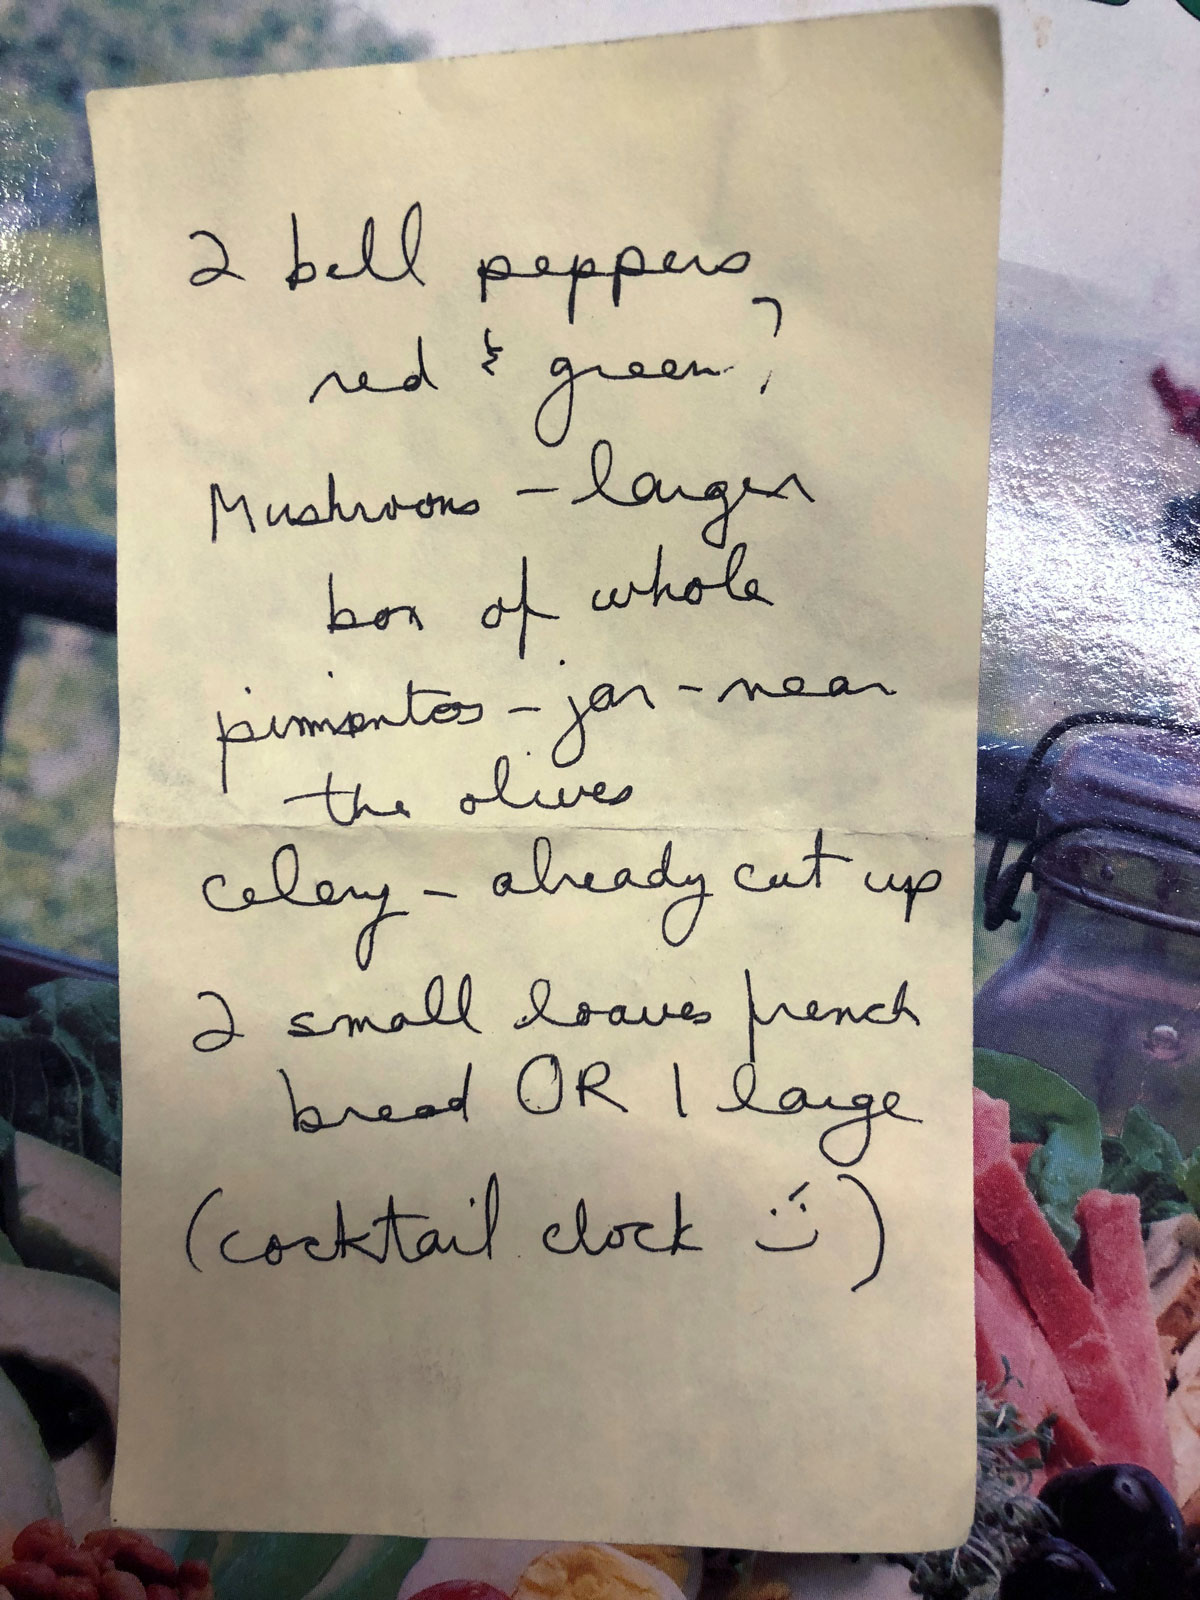 2 bell peppers
red & green?
Mushrooms - larger
box of whole
pimientos - jar - near
the olives
celery - already cut up
2 small loaves french
bread OR 1 large
(cocktail clock :))